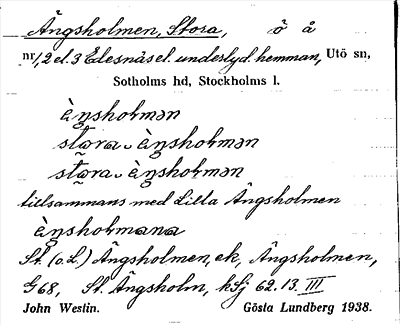 Ängsholmen, Stora, ö å
nr 1, 2 el. 3 Edesnäs el. underlyd. hemman, Utö sn,
Sotholms hd, Stockholms l.
ἀŋshoƚmən
stωra ἀŋshoƚmən
stωra ἀŋshoƚmən
tillsammans med Lilla Ängsholmen
ἀŋshoƚmana
St. (o. L.) Ängsholmen, ek, Ängsholmen,
G 68, St. Ängsholm, kSj 62. 13. III
John Westin. Gösta Lundberg 1938.